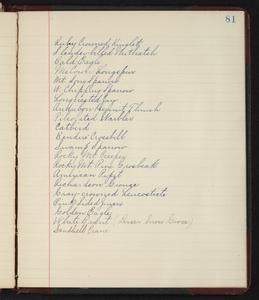 81
Ruby Crowned Kinglet
Slender-billed Nuthatch
Bald Eagle
McCown's Longspur
Mt. Song Sparrow
W. Chipping Sparrow
Long crested Jay
Audubon Hermit Thrush
Pileolated Warbler
Catbird
Bendire Crossbill
Swamp Sparrow
Rocky Mt Creeper
Rocky Mt Pine Grosbeak
American Pipit
Richardson Grouse
Gray-crowned Leucosticte
Pink Sided Junco
Golden Eagle
White (Lesser Snow Goose)
Sandhill Crane